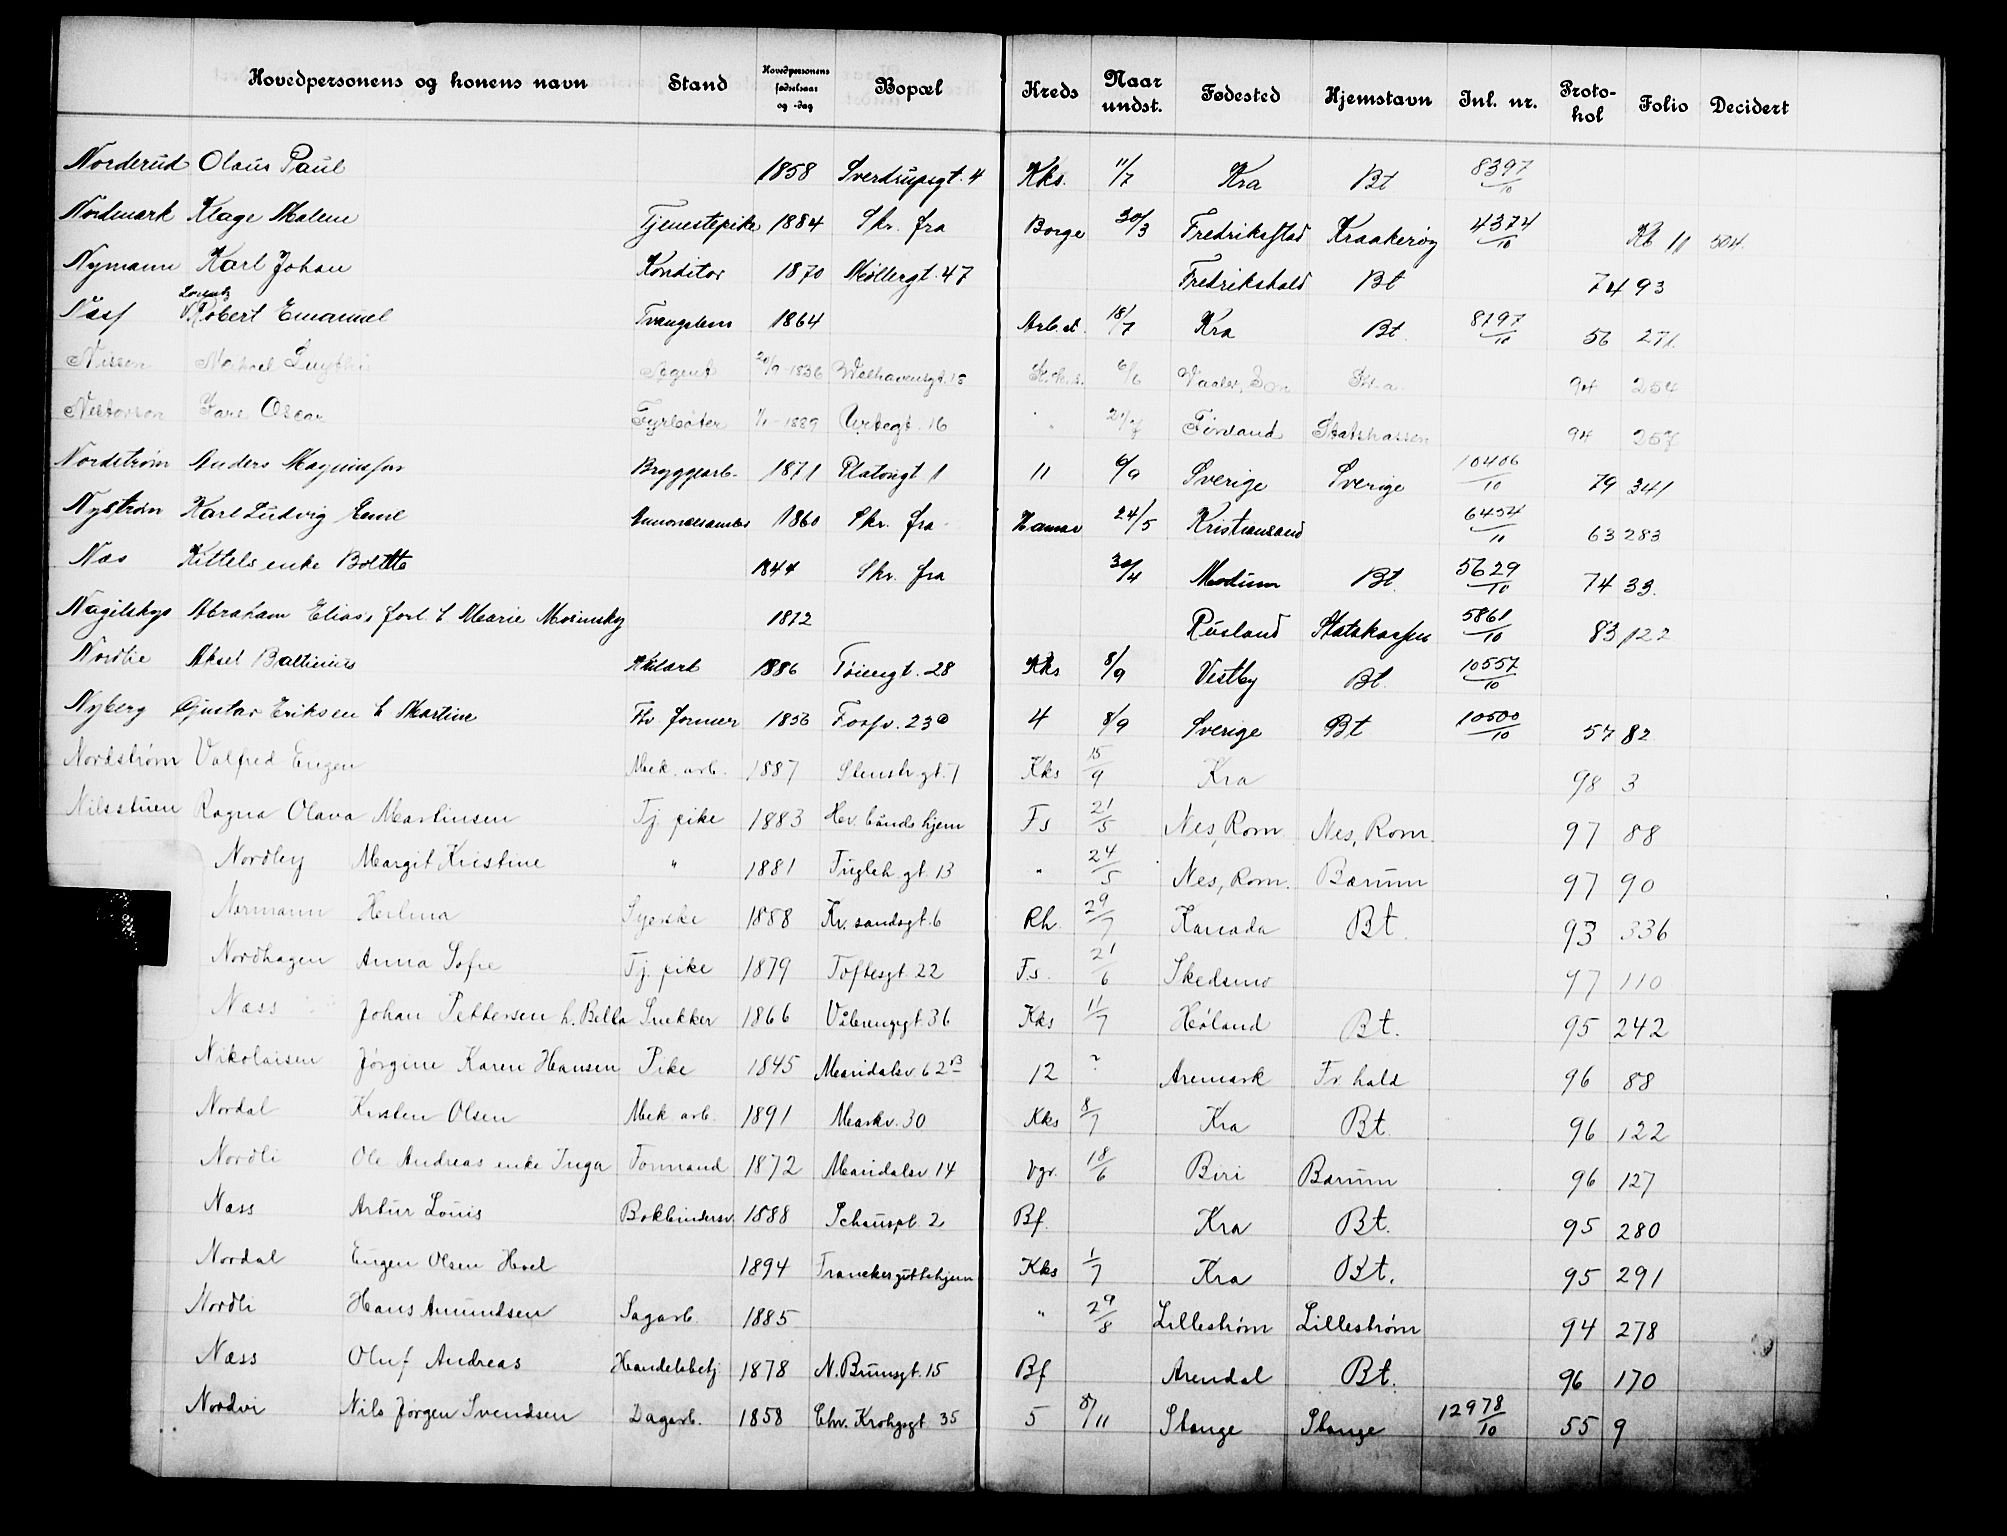 Hovedpersonens og konens navn Stand Hovedpersonens fødselsaar og -dag Bopæl Kreds Naar undst. Fødested Hjemstavn Inl. nr. Protokol Folio Decidert
Norderud Olaus Paul 1858 Sverdrupsgt. 4 Kks. 11/7 Kra Bt 8397/10
Nordmark Klage Malene Tjenestepike 1884 Skr. fra Borge 30/3 Fredrikstad Kraakerøy 4374/10 Kb 11 504
Nymann Karl Johan Konditor 1870 Møllergt. 47 Fredrikshald Bt 74 93
Näsf Robert Emanuel Tvangslem 1864 Arb.st. 18/7 Kra Bt 8797/10 56 271
Nissen Agent 20/9-1836 Welhavensgt. 15 6/6 94 254
Oscar Fyrbøter 1/1-1889 Urtegt. 16 " Finland Statskassen 94 257
Nordstrøm Anders Magnussen Bryggearb. 1871 Platousgt 1 11 6/9 Sverige Sverige 10406/10 79 341
Nystrøm Karl Ludvig Emil 1860 Skr. fra Hamar 24/5 Kristiansand 6454/11 63 283
Næs Kittels enke Bolette 1844 Skr. fra 30/4 Modum Bt. 5629/10 74 33.
Nagilskys Abraham Elias, forl. h Marie Mosinsky 1872 Rusland Statskassen 5861/10 83 122
Nordlie Aksel Baltinius 1886 Tøiengt. 28 Kks 8/9 Vestby Bt. 10557/10
Nyberg Gustav Eriksen h Martine Fhv. former 1856 Fossv. 23a 4 8/9 Sverige Bt 10500/10 57 82
Nordstrøm Valfred Eugen Mek. arb. 1887 Stenstr.gt. 7 Kks 15/9 Kra 98 3
Nilsstuen Ragna Olava Martinsen Tj. pike 1883 Hv. bånds hjem Fs 21/5 Nes, Rom. Nes, Rom. 97 88
Nordby Margit Kristine " 1881 Fugleh.gt. 13 " 24/5 Nes, Rom. Bærum 97 90
Normann Helma Syerske 1858 Kr.sandsgt. 6 Rh 29/7 Kanada Bt. 93 336
Nordhagen Anna Sofie Tj. pike 1879 Toftesgt. 22 Fs. 21/6 Skedsmo 97 110
Næss Johan Pettersen h. Bella Snekker 1866 Vålerenggt. 36 Kks 11/7 Høland Bt. 95 242
Nikolaisen Jørgine Karen Hansen Pike 1845 Maridalsv. 62 B 12 ? Aremark Fr. hald 96 88
Nordal Kristen Olsen Mek. arb. 1891 Markv. 30 Kks 8/7 Kra Bt. 96 122
Nordli Ole Andreas enke Inga Formand 1872 Maridalsv 14 Vgr. 18/6 Biri Bærum 96 127
Næss Artur Louis Bokbindersv. 1888 Schouspl. 2 Bf. Kra Bt. 95 280
Nordal Eugen Olsen Hoel 1894 Franckes guttehjem Kks 1/7 Kra Bt. 95 291
Nordli Hans Amundsen Sagarb. 1885 " 29/8 Lillestrøm Lillestrøm 94 278
Næss Oluf Andreas Handelsbetj. 1878 N. Brunsgt. 15 Bf Arendal Bt. 96 170
Nordvi Nils Jørgen Svendsen Dagarb. 1858 Chr. Krohgsgt 35 5 8/11 Stange Stange 12978/10 55 9